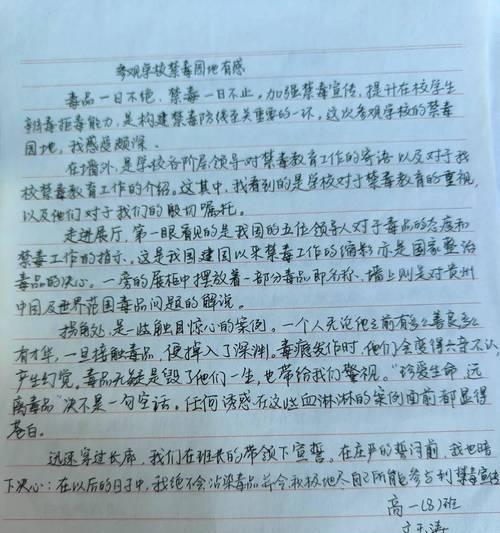 参观学校禁毒园地有感
毒品一日不绝,禁毒一日不止。加强禁毒宣传,提升在校学生
辩毒拒毒能力,是构建禁毒防线至关重要的一环。这次参观学校的禁毒
园地,我感受颇深。
在墙外,是学校各阶层领导对禁毒教育工作的寄语以及对于我
校禁毒教育工作的介绍。这其中,我看到的是学校对于禁毒教育的重视,
以及他们对于我们的殷切嘱托。
走进展厅,第一眼看见的是我国的五位领导人对于毒品的态度和
禁毒工作的指示。这是我国建国以来禁毒工作的缩影亦是国家整治
毒品的决心。一旁的展柜中摆放着一部分毒品即名称,墙上则是对贵州
中国及世界范围毒品问题的解说。
拐角处,是一些触目惊心的案例。一个人无论他之前有多么善良多么
有才华,一旦接触毒品,便掉入了深渊。毒瘾发作时,他们会变得六亲不认
产生幻觉。毒品无疑是毁了他们一生,也带给我们警视。“珍爱生命,远
离毒品”决不是一句空话。任何诱惑在这些血淋淋的案例面前都显得
苍白。
迅速穿过长廊,我们在班长的带领下宣誓。在庄严的誓词前,我也暗
下决心:在以后的日子中,我绝不会沾染毒品并会积极地尽自己所能参与到禁毒宣传
高一(8)班
涛